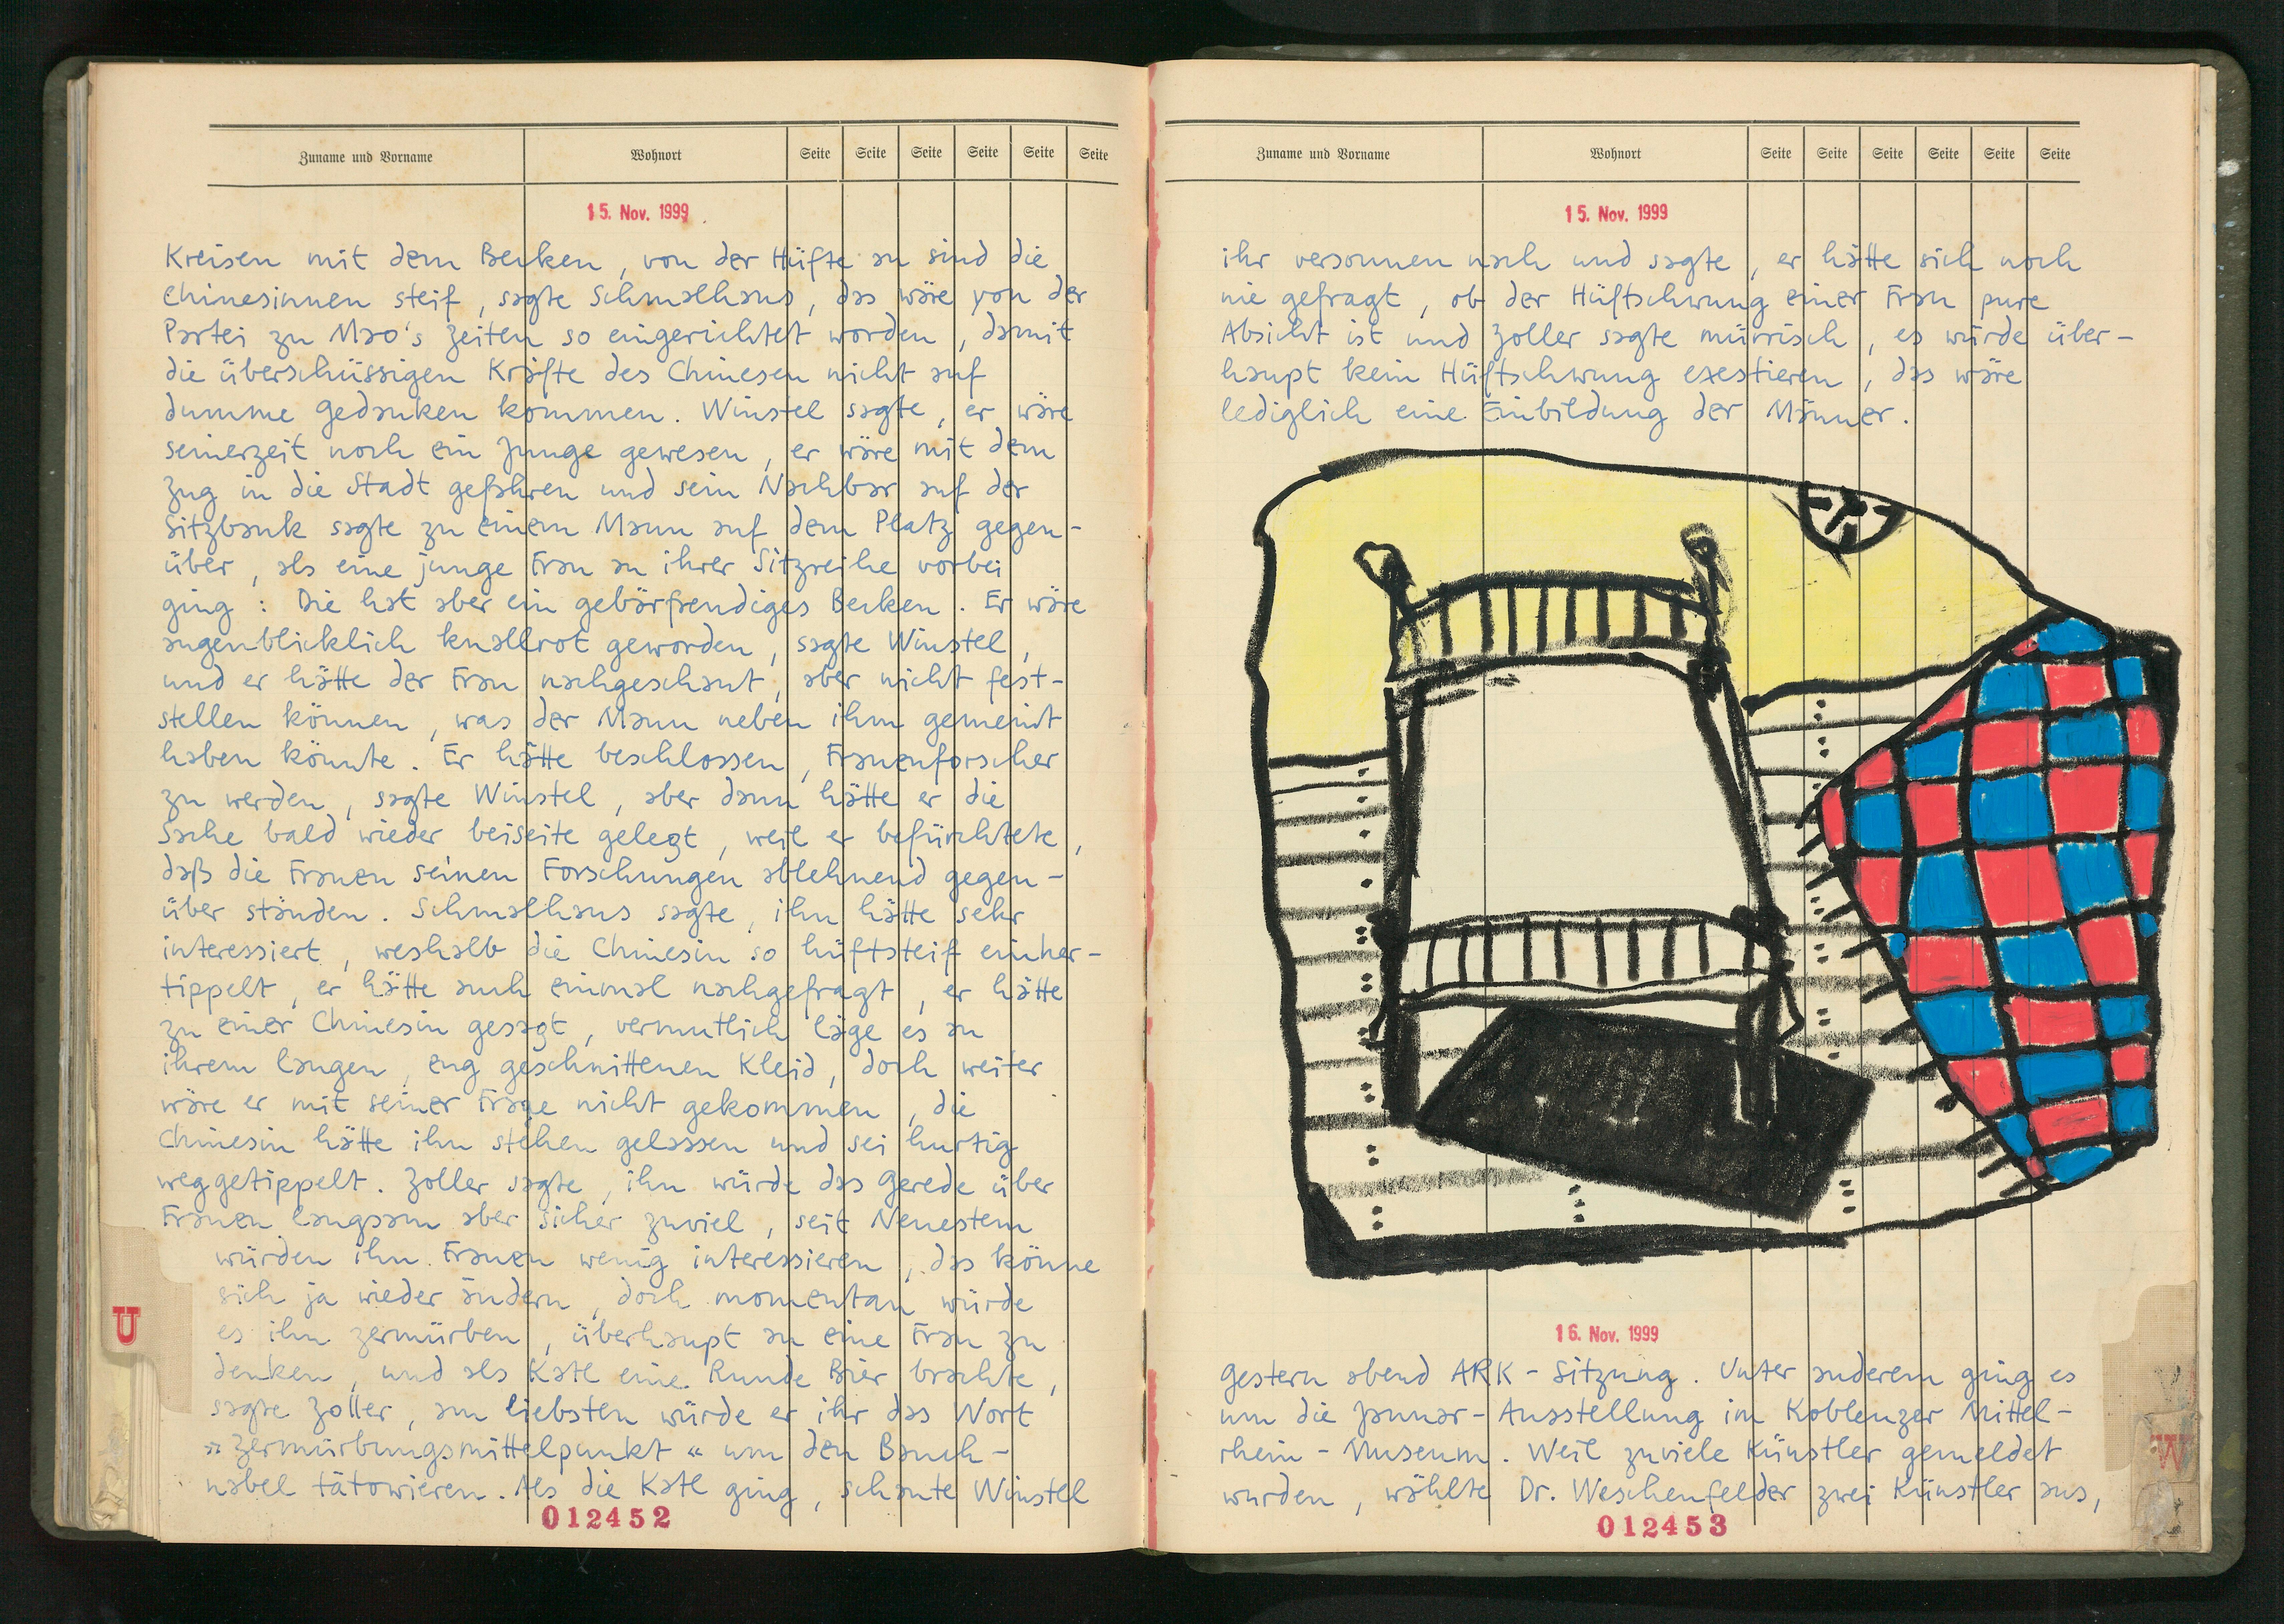 Zuname und Vorname Wohnort Seite Seite Seite Seite Seite Seite
15. Nov. 1999
Kreisen mit dem Becken, von der Hüfte an sind die
Chinesinnen steif, sagte Schmalhans, das wäre von der
Partei zu Mao's Zeiten so eingerichtet worden, damit
die überschüssigen Kräfte des Chinesen nicht auf
dumme Gedanken kommen. Winstel sagte, er wäre
seinerzeit noch ein Junge gewesen, er wäre mit dem
Zug in die Stadt gefahren und sein Nachbar auf der
Sitzbank sagte zu einem Mann auf dem Platz gegen-
über, als eine junge Frau an ihrer Sitzreihe vorbei
ging: Die hat aber ein gebärfreudiges Becken. Er wäre
augenblicklich knallrot geworden, sagte Winstel,
und er hätte der Frau nachgeschaut, aber nicht fest-
stellen können, was der Mann neben ihm gemeint
haben könnte. Er hätte beschlossen, Frauenforscher
zu werden, sagte Winstel, aber dann hätte er die
Sache bald wieder beiseite gelegt, weil er befürchtete,
daß die Frauen seinen Forschungen ablehnend gegen-
über ständen. Schmalhans sagte, ihn hätte sehr
interessiert, weshalb die Chinesin so hüftsteif einher-
tippelt, er hätte auch einmal nachgefragt, er hätte
zu einer Chinesin gesagt, vermutlich läge es an
ihrem langen, eng geschnittenen Kleid, doch weiter
wäre er mit seiner Frage nicht gekommen, die
Chinesin hätte ihn stehen gelassen und sei hurtig
weggetippelt. Zoller sagte, ihn würde das Gerede über
Frauen langsam aber sicher zuviel, seit Neuestem
würden ihn Frauen wenig interessieren, das könne
sich ja wieder ändern, doch momentan würde
es ihn zermürben, überhaupt an eine Frau zu
denken, und als Katl eine Runde Bier brachte,
sagte Zoller, am liebsten würde er ihr das Wort
»Zermürbungsmittelpunkt« um den Bauch-
nabel tätowieren. Als die Katl ging, schaute Winstel
012452
U
Zuname und Vorname Wohnort Seite Seite Seite Seite Seite Seite
15. Nov. 1999
ihr versonnen nach und sagte, er hätte sich noch
nie gefragt, ob der Hüftschwung einer Frau pure
Absicht ist und Zoller sagte mürrisch, es würde über-
haupt kein Hüftschwung exestieren, das wäre
lediglich eine Einbildung der Männer.
16. Nov. 1999
Gestern abend ARK-Sitzung. Unter anderem ging es
um die Januar-Ausstellung im Koblenzer Mittel-
rhein-Museum. Weil zuviele Künstler gemeldet
wurden, wählte Dr. Weschenfelder zwei Künstler aus,
012453
W